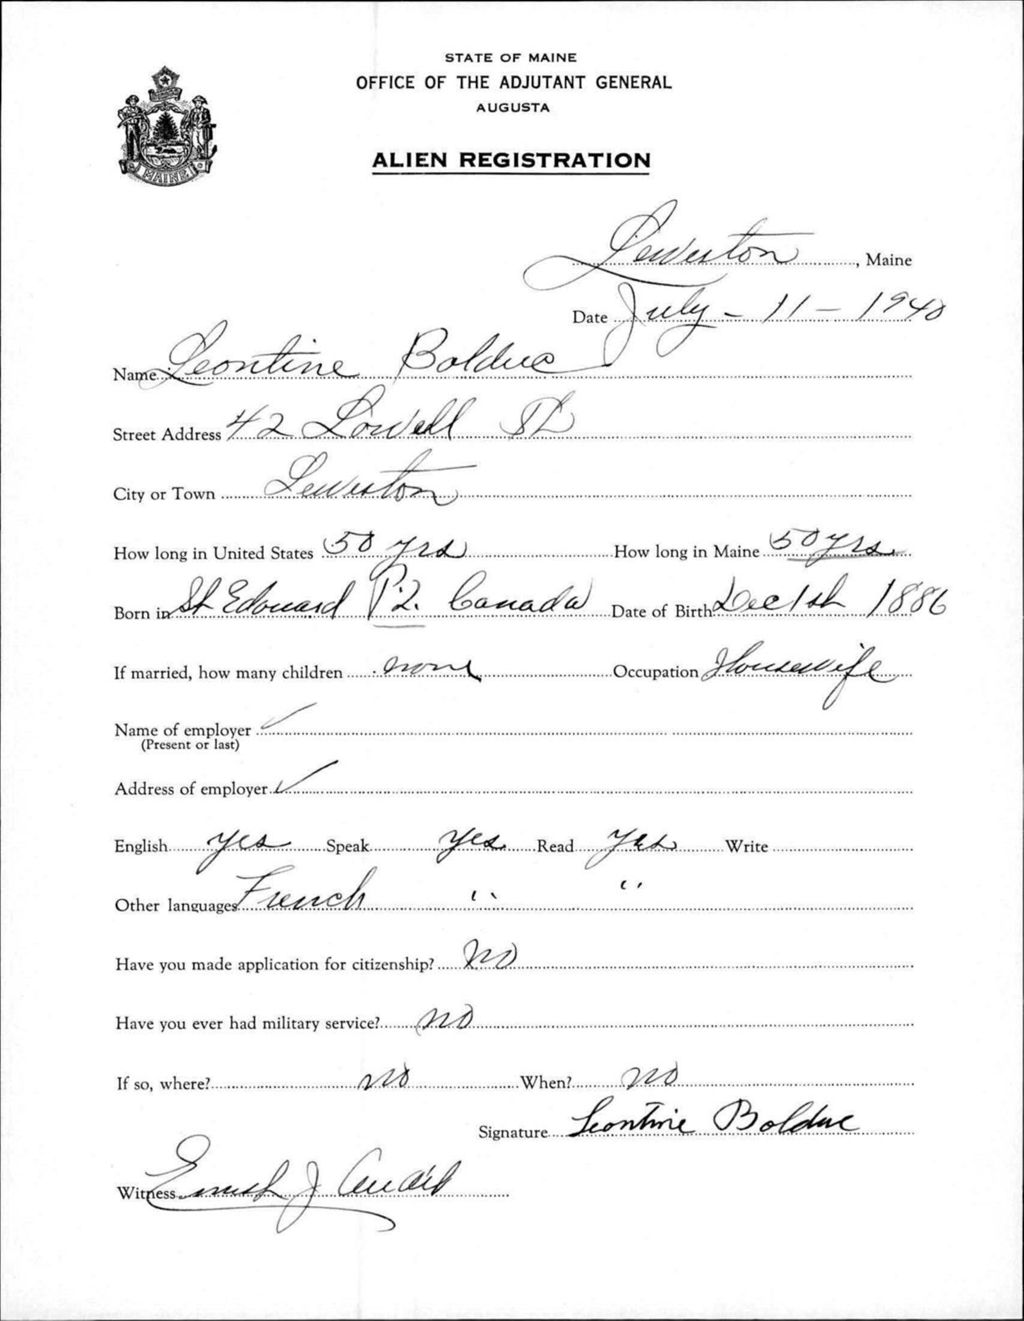 STATE OF MAINE
OFFICE OF THE ADJUTANT GENERAL
AUGUSTA
ALIEN REGISTRATION
MAINE
Lewiston, Maine
Date July - 11 - 1940
Name Leontine Bolduc
Street Address 42 Lowell St
City or Town Lewiston
How long in United States 50 yrs How long in Maine 50 yrs
Born in St Edouard P.Q. Canada Date of Birth Dec 1st 1886
If married, how many children none Occupation Housewife
Name of employer ✓
(Present or last)
Address of employer ✓
English yes Speak yes Read yes Write
Other languages French " "
Have you made application for citizenship? No
Have you ever had military service? no
If so, where? no When? no
Signature Leontine Bolduc
Witness J